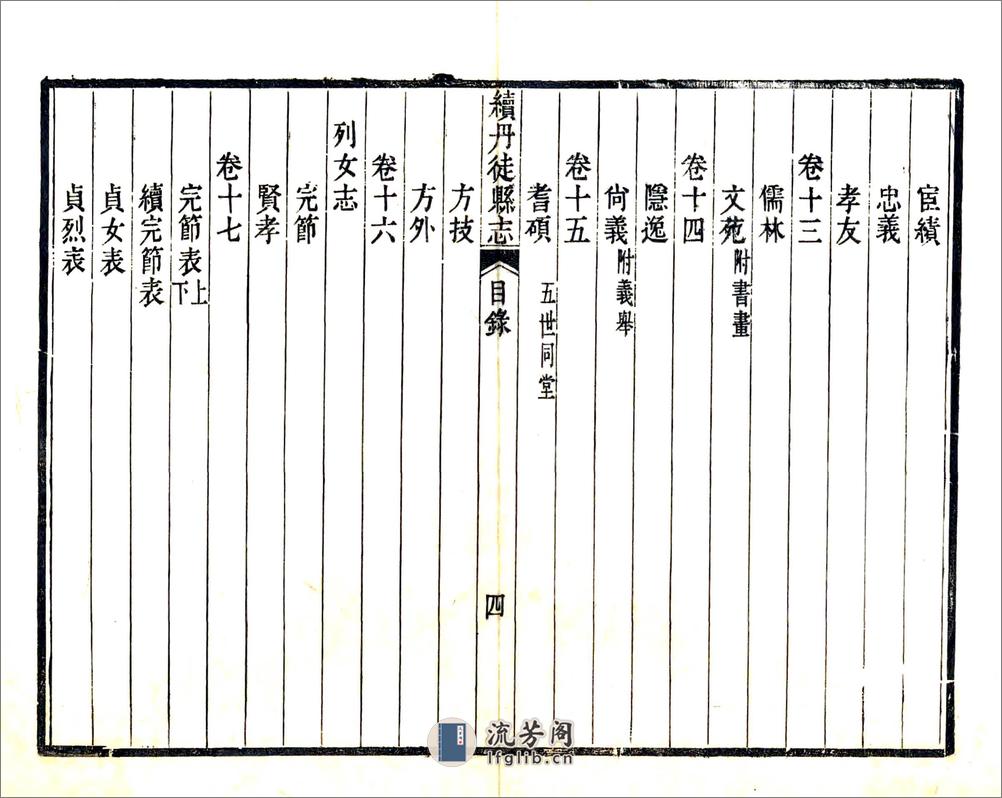 宦績
忠義
孝友
卷十三
儒林
文苑附書畫
卷十四
隱逸
尙義附義舉
卷十五
耆碩五世同堂
續丹徒縣志 目錄 四
方技
方外
卷十六
列女志
完節
賢孝
卷十七
完節表上下
續完節表
貞女表
貞烈表
流芳阁
lfglib.cn